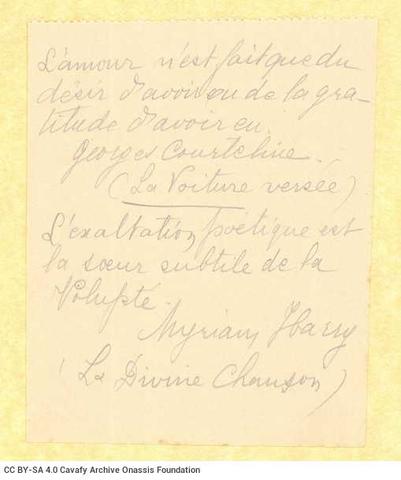 L'amour n'est fait que du
désir d'avoir ou de la gra-
titude d'avoir eu.
Georges Courteline.
(La Voiture versée)
L'exaltation poétique est
la sœur subtile de la
Volupté.
Myriam Harry
(La Divine Chanson)
CC BY-SA 4.0 Cavafy Archive Onassis Foundation